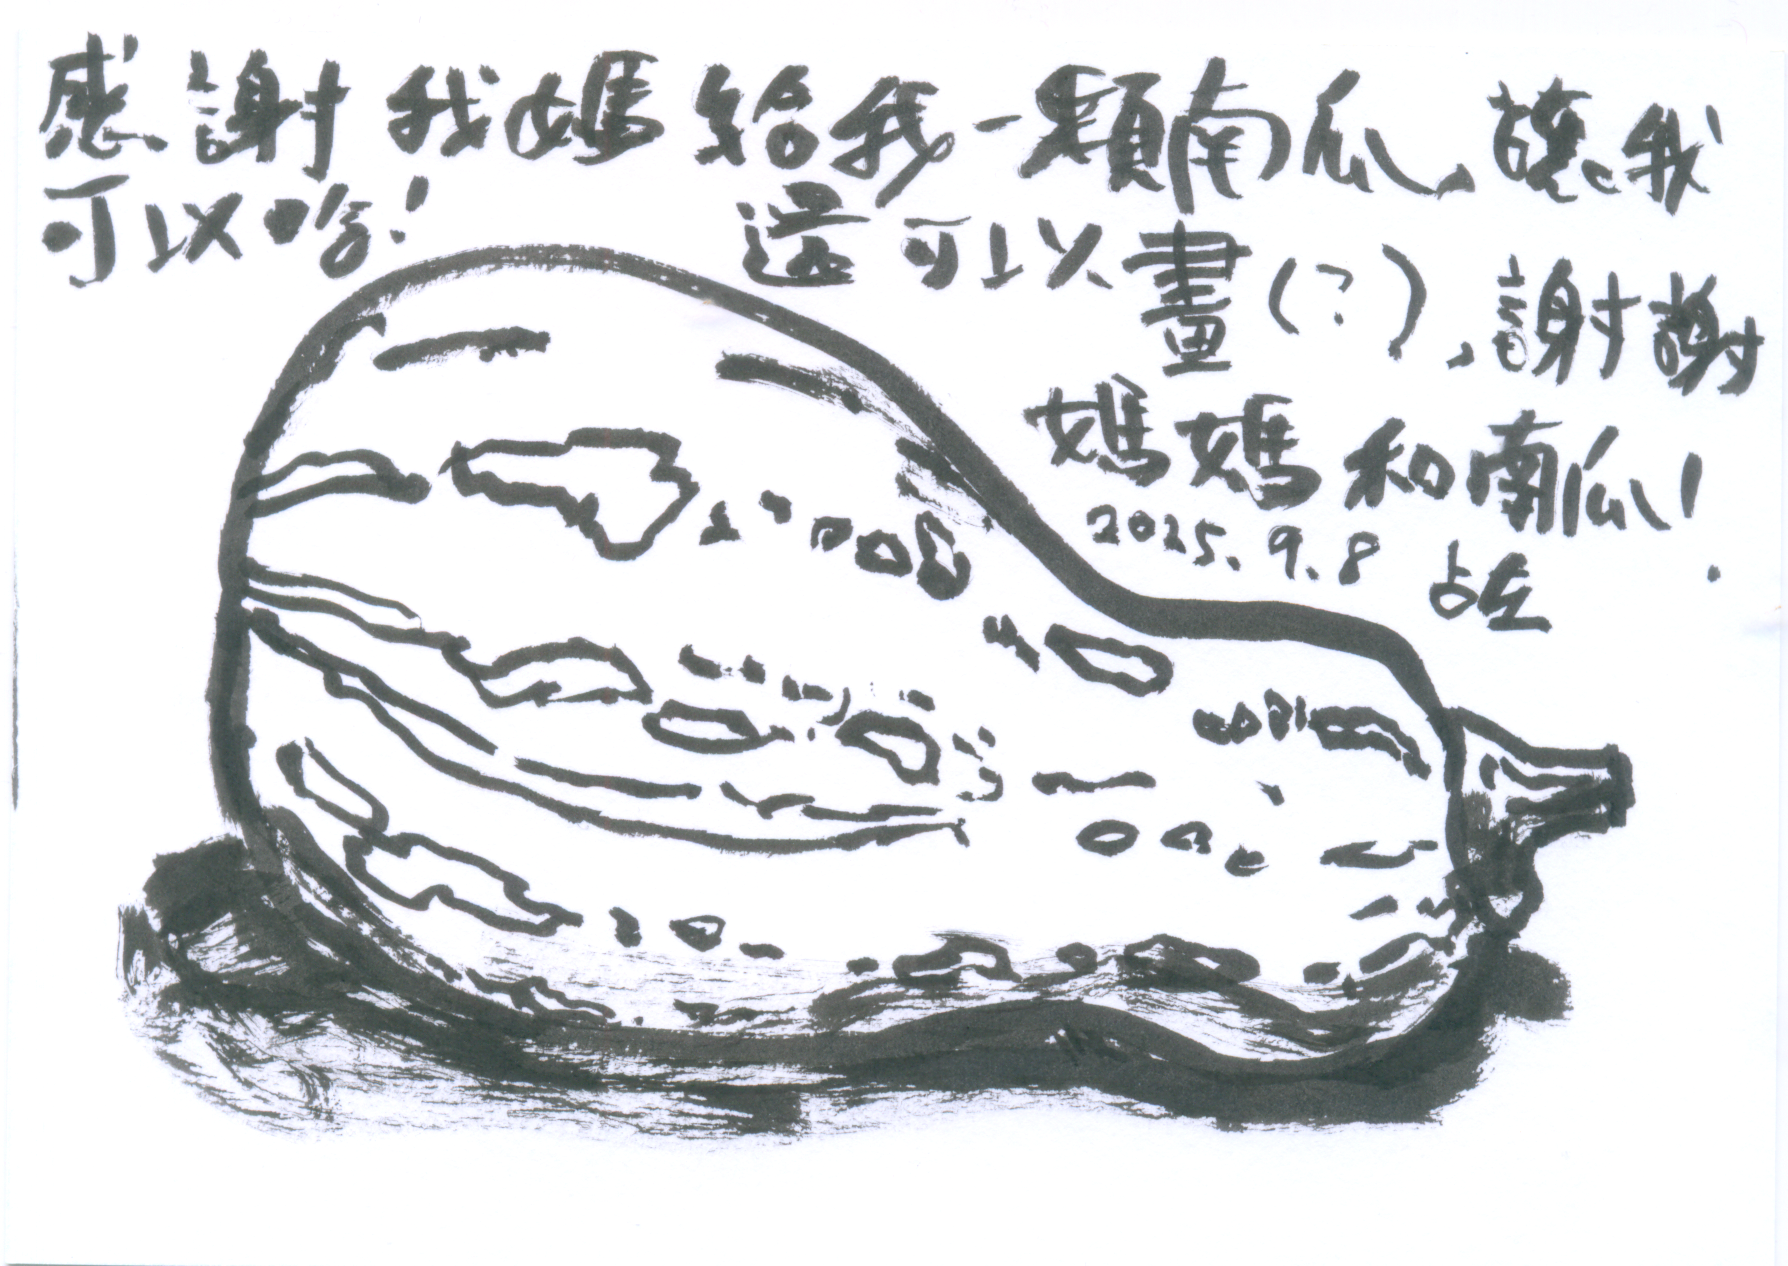 感謝我媽給我一顆南瓜，讓我
可以吃！還可以畫（？），謝謝
媽媽和南瓜！
2025.9.8 占左